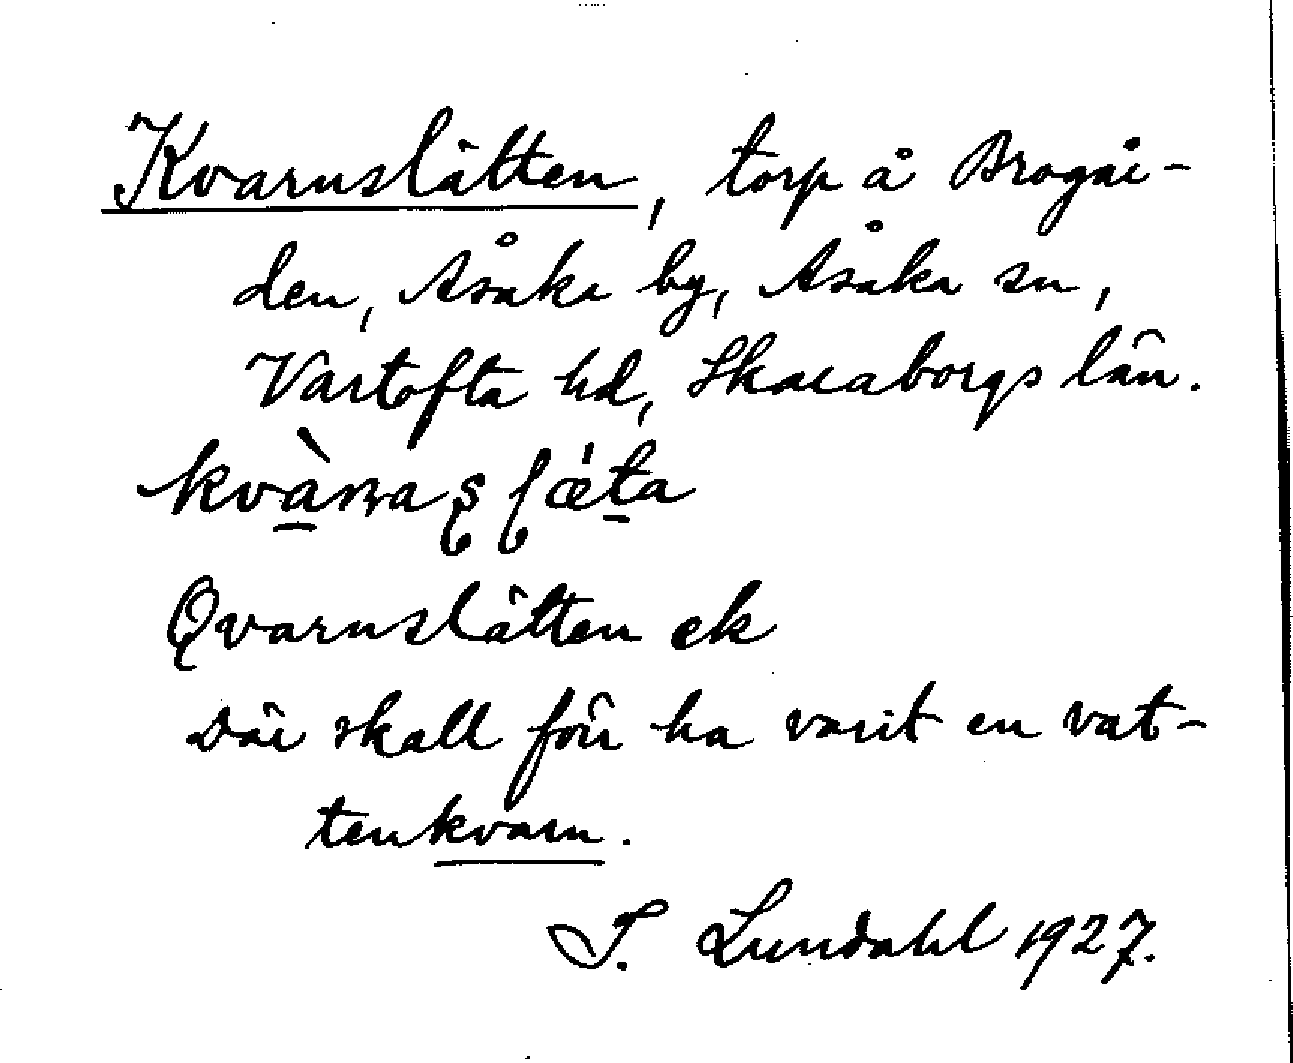 Kvarnslätten, torp å Brogår-
den, Åsaka by, Åsaka sn,
Vartofta hd, Skaraborgs län.
Qvarnslätten ek
Där skall förr ha varit en vat-
tenkvarn.
I. Lundahl 1927.